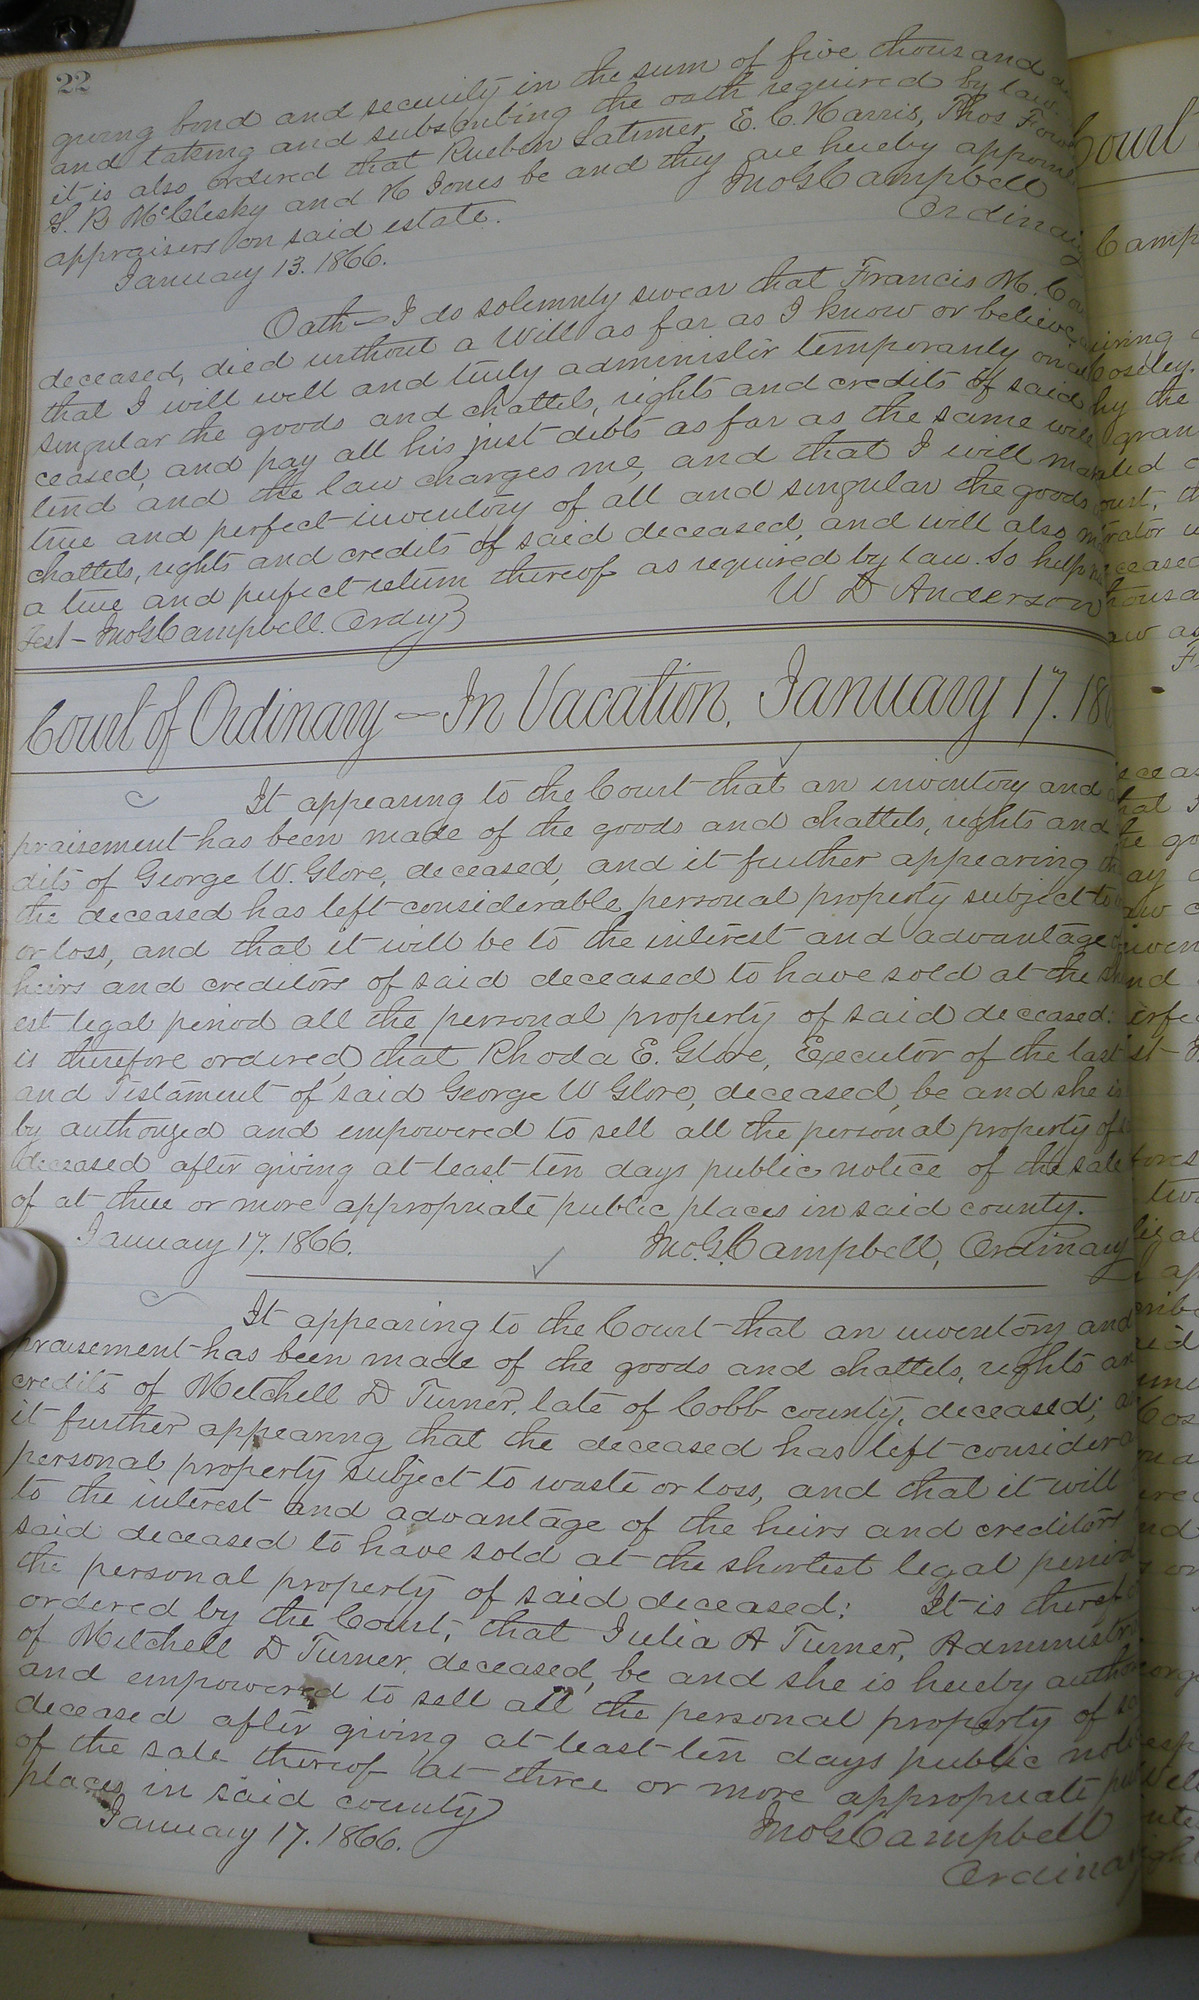 22
giving bond and security in the sum of five thousand
and taking and subscribing the oath required by law
it is also ordered that Rueben Latimer, E. C. Harris, Thos
S. B. McClesky and N Jones be and they are hereby appoin
appraisers on said estate.
Jno G Campbell
Ordinary
January 13. 1866.
Oath — I do solemnly swear that Francis M.
deceased, died without a Will as far as I know or believe,
that I will well and truly administer temporarily on
singular the goods and chattels, rights and credits of said
ceased, and pay all his just debts as far as the same will
tend and the law charges me, and that I will
true and perfect inventory of all and singular the goods,
chattels, rights and credits of said deceased, and will also
a true and perfect return thereof as required by law. So help me
W D Anderson
Test - Jno G Campbell. Ordry
Court of Ordinary — In Vacation, January 17. 186
It appearing to the Court that an inventory and
praisement has been made of the goods and chattels, rights and
dits of George W. Glore, deceased, and it further appearing
the deceased has left considerable personal property subject to
or loss, and that it will be to the interest and advantage
heirs and creditors of said deceased to have sold at the
est legal period all the personal property of said deceased:
is therefore ordered, that Rhoda E. Glore, Executor of the last
and Testament of said George W Glore, deceased, be and she is
by authorized and empowered to sell all the personal property of
deceased after giving at least ten days public notice of the sale
of at three or more appropriate public places in said county.
January 17. 1866.
Jno. G. Campbell, Ordinary
It appearing to the Court that an inventory and
praisement has been made of the goods and chattels, rights an
credits of Mitchell D Turner, late of Cobb county, deceased;
it further appearing that the deceased has left considera
personal property subject to waste or loss, and that it will
to the interest and advantage of the heirs and creditors
said deceased to have sold at the shortest legal period
the personal property of said deceased: It is theref
ordered by the Court, that Julia A Turner, Administr
of Mitchell D Turner, deceased, be and she is hereby author
and empowered to sell all the personal property of
deceased after giving at least ten days public noti
of the sale thereof at three or more appropriate
places in said county
January 17. 1866.
Jno G Campbell
Ordina